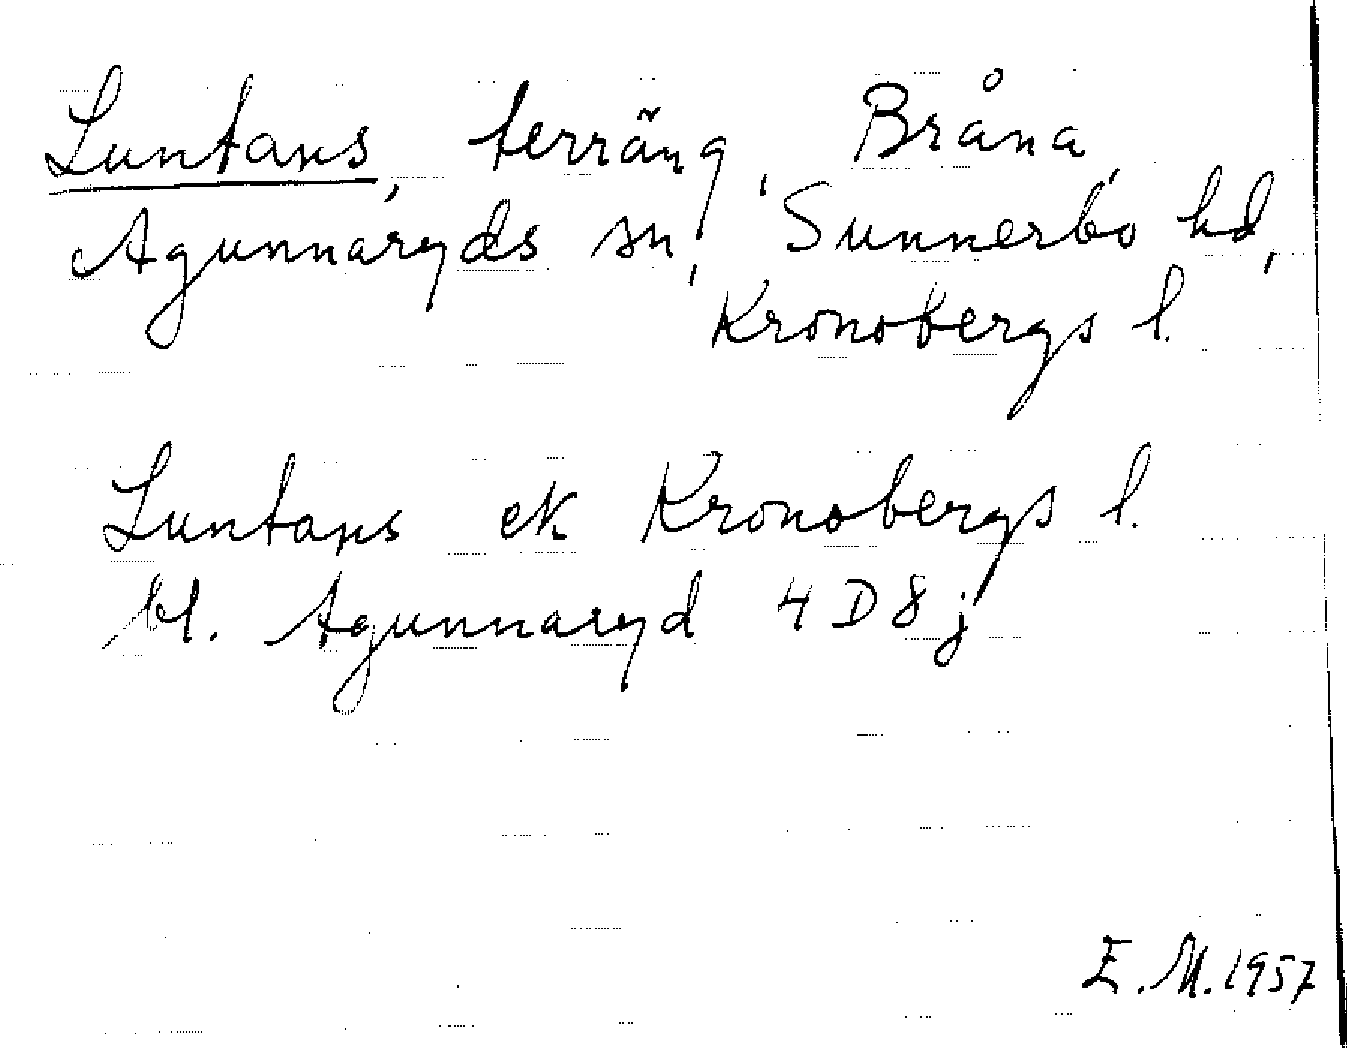 Luntans, terräng, Bråna,
Agunnaryds sn, Sunnerbo hd,
Kronobergs l.
Luntans ek Kronobergs l.
bl. Agunnaryd 4D8j
E.M. 1957